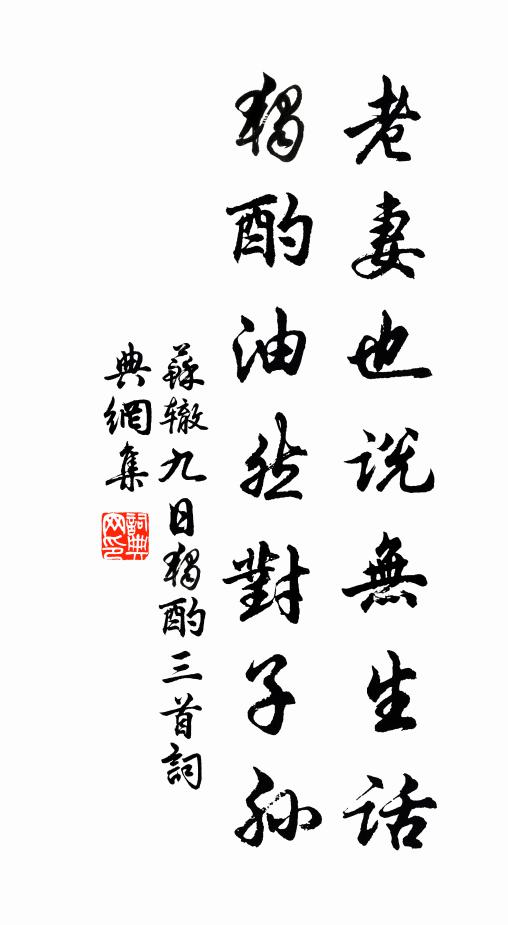 老妻也説無生話
獨酌油然對子孫
蘇轍九日獨酌三首詞
典網集
詞典網印